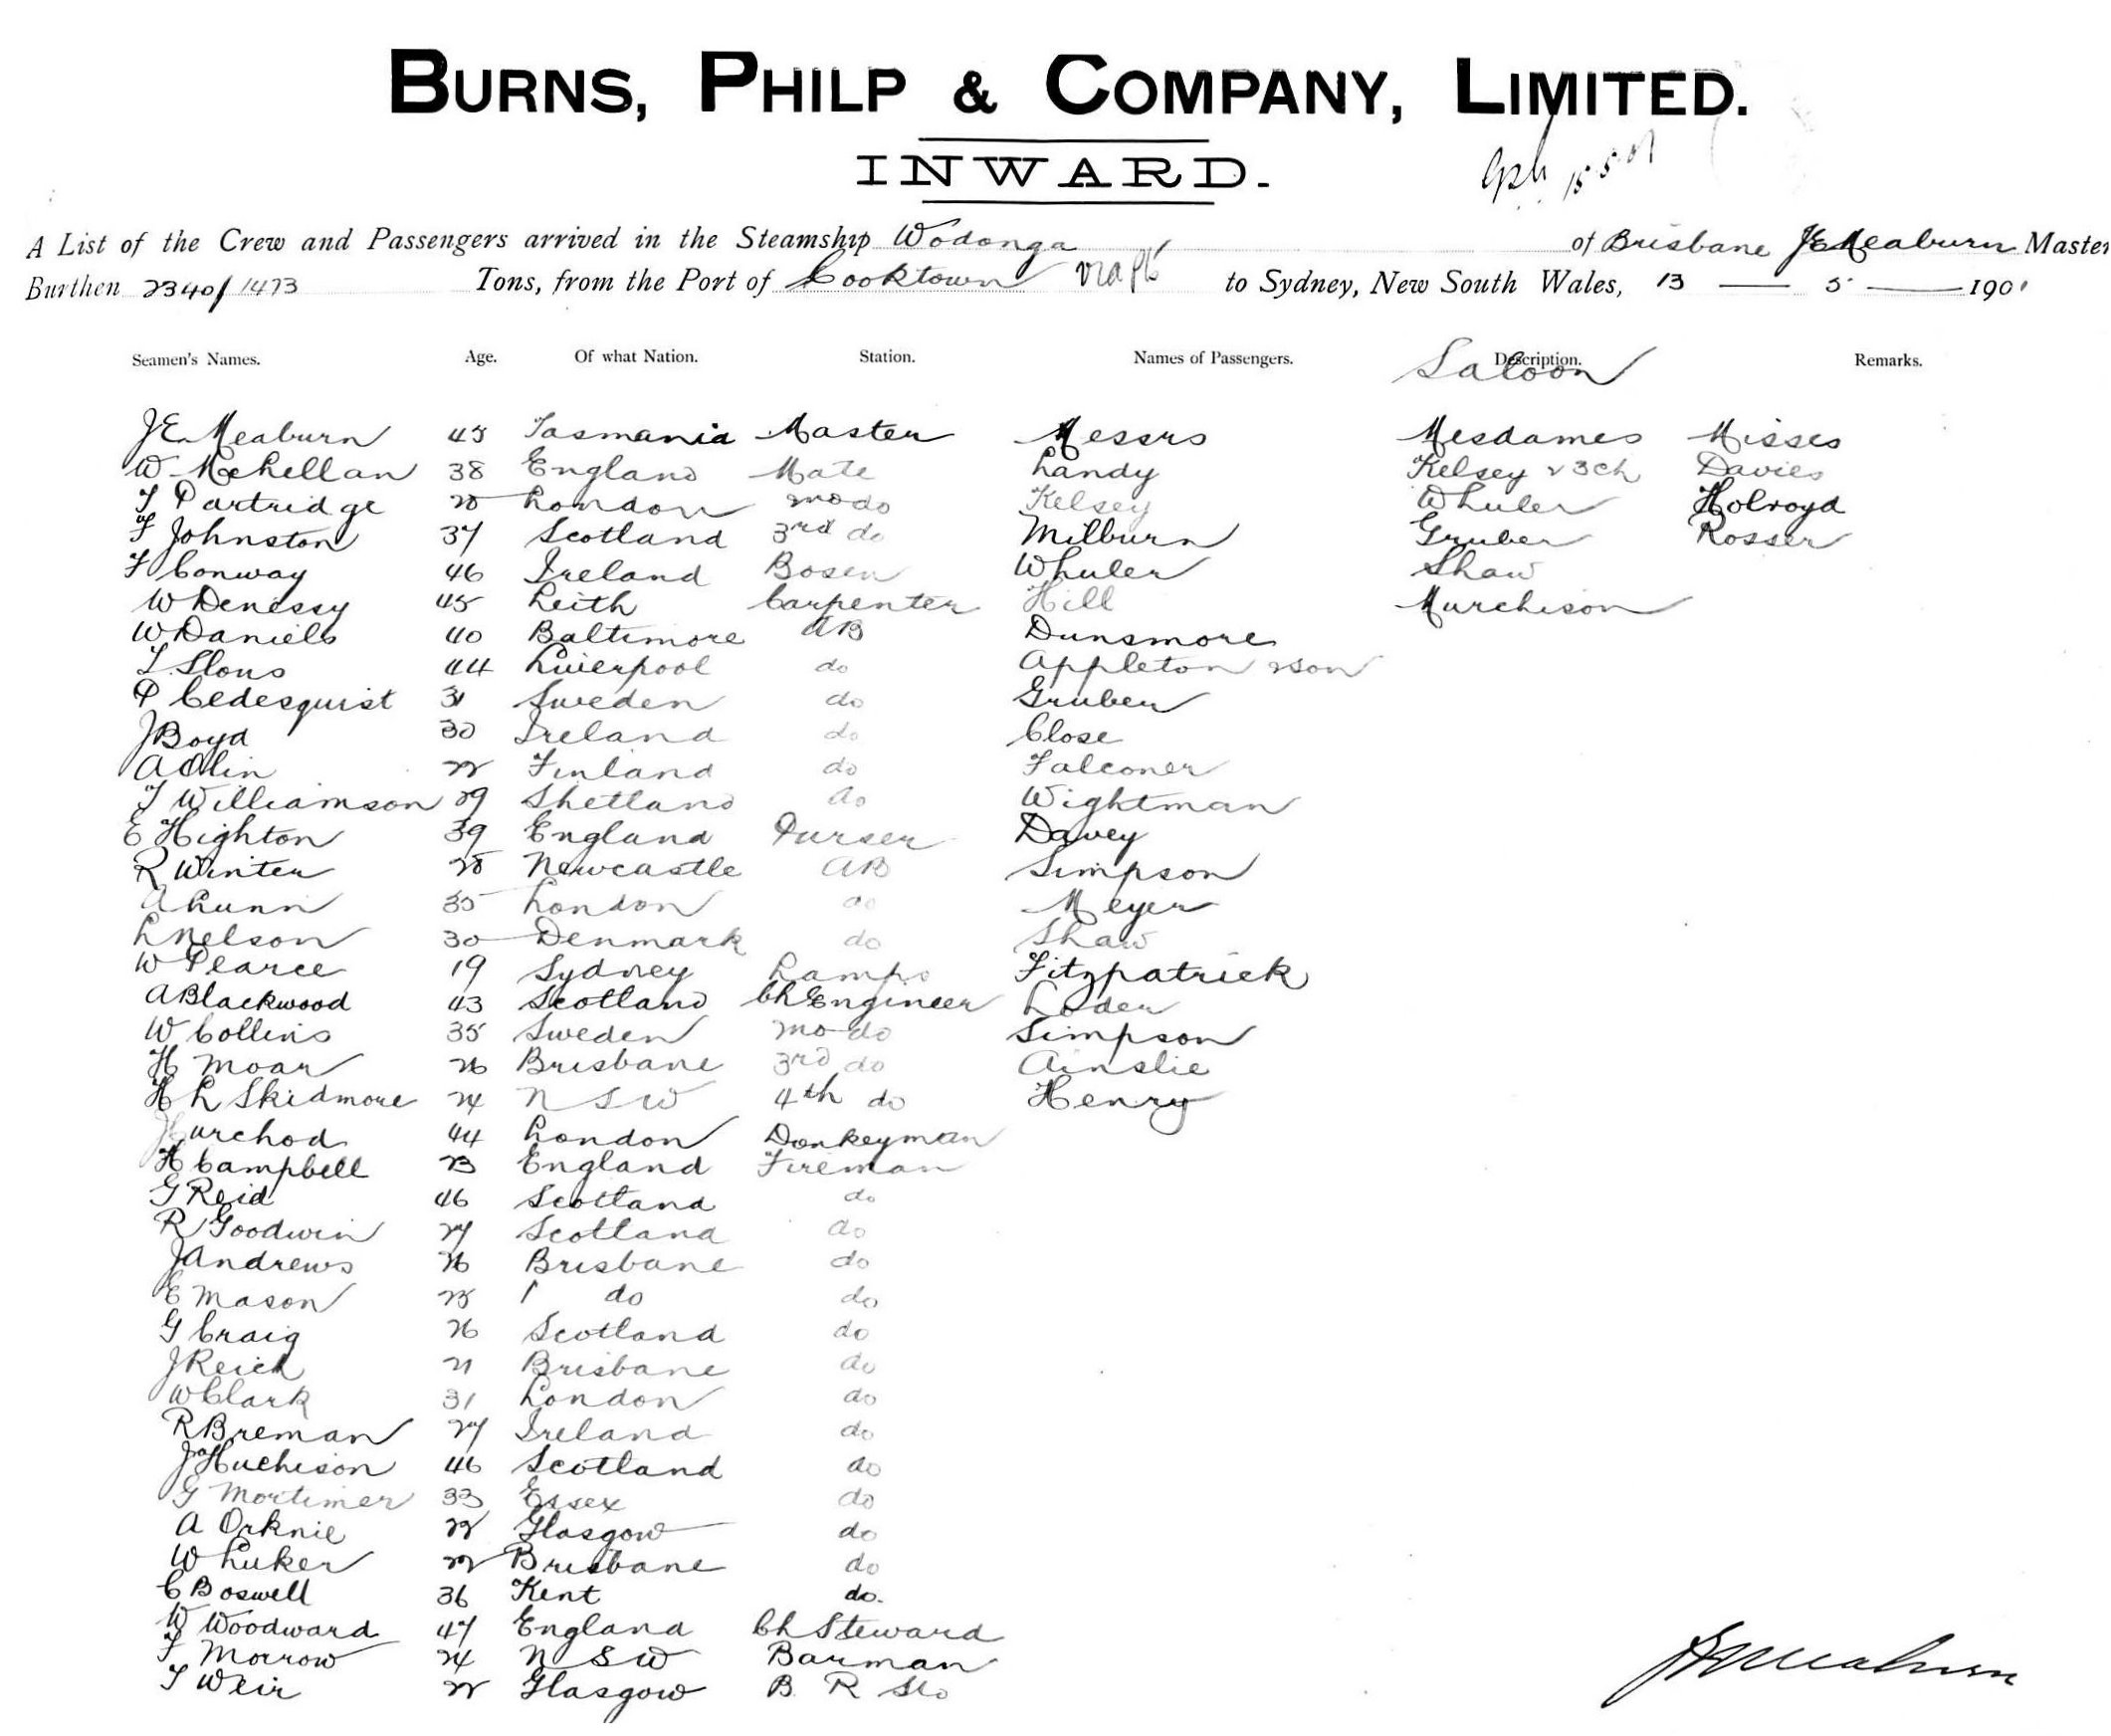 BURNS, PHILP & COMPANY, LIMITED.
INWARD.
15 5 01
A List of the Crew and Passengers arrived in the Steamship Wodonga of Brisbane J E Meaburn Master
Burthen 2340/1473 Tons, from the Port of Cooktown via to Sydney, New South Wales, 13 — 5 — 1901
Seamen's Names. Age. Of what Nation. Station. Names of Passengers. Description. Remarks.
Saloon
J E Meaburn 45 Tasmania Master Messrs Mesdames Misses
W McLellan 38 England Mate Landy Kelsey & 3 ch Davies
T Partridge London do Kelsey Whuler Holroyd
F Johnston 37 Scotland 3rd do Milburn Gruber Rosser
F Conway 46 Ireland Bosen Whuler Shaw
W Denessy 45 Leith Carpenter Hill Murchison
W Daniels 40 Baltimore AB Dunsmore
L Slous 44 Liverpool do Appleton & son
P Cedesquist 31 Sweden do Gruber
J Boyd 30 Ireland do Close
A Olin 22 Finland do Falconer
T Williamson 29 Shetland do Wightman
E Highton 39 England Purser Davey
R Winter 28 Newcastle AB Simpson
A Lunn 35 London do Meyer
L Nelson 30 Denmark do Shaw
W Pearce 19 Sydney Lamps Fitzpatrick
A Blackwood 43 Scotland Ch Engineer Loder
W Collins 35 Sweden do Simpson
H Moar 26 Brisbane 3rd do Ainslie
H L Skidmore 24 N S W 4th do Henry
Jurchod 44 London Donkeyman
H Campbell 23 England Fireman
G Reid 46 Scotland do
R Goodwin 27 Scotland do
J Andrews 26 Brisbane do
E Mason 25 do do
G Craig 26 Scotland do
J Reich 21 Brisbane do
W Clark 31 London do
R Breman 27 Ireland do
J Huchison 46 Scotland do
G Mortimer 33 Essex do
A Orknie 22 Glasgow do
W Luker 22 Brisbane do
C Boswell 36 Kent do.
W Woodward 47 England Ch Steward
F Morrow 24 N S W Barman
T Weir 22 Glasgow B. R Std
J E Meaburn